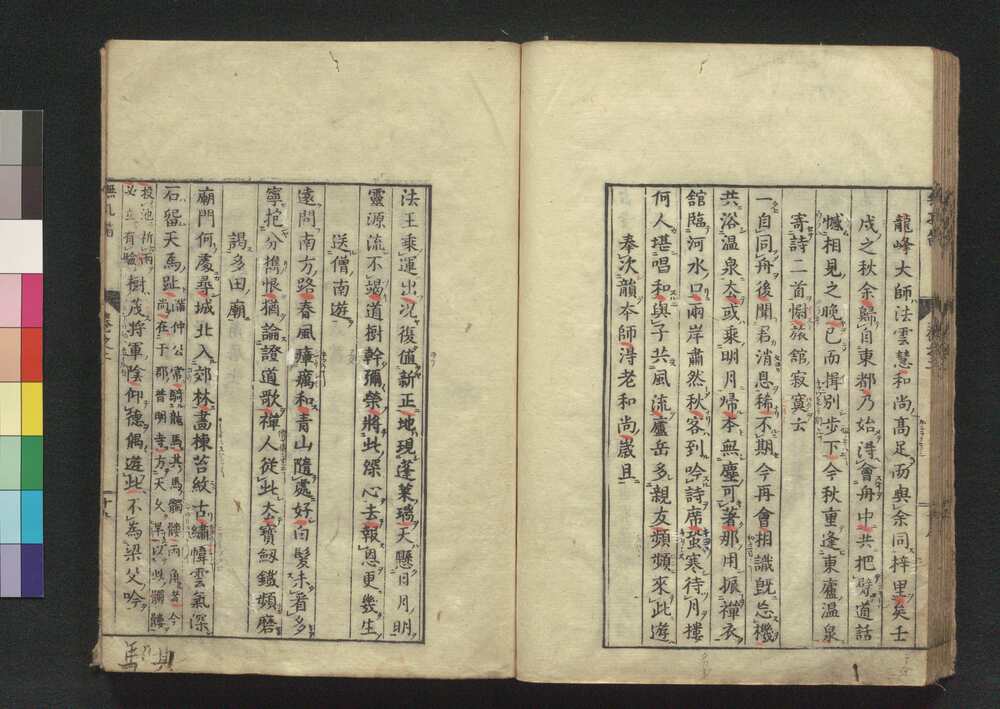 龍峰大師法雲慧和尚高足而與余同梓里矣壬
戌之秋余歸自東都乃始得會舟中共把臂道話
憾相見之晚已而揖別步下今秋重逢東廬温泉
寄詩二首慰旅舘寂寞云
一自同舟後聞君消息稀不期今再會相識既忘機
共浴温泉去或乘明月歸本無塵可著那用振禪衣
舘臨河水口兩岸肅然秋客到吟詩席蛩寒待月樓
何人堪唱和與子共風流廬岳多親友頻頻來此遊
奉次韻本師得老和尚歳旦
法王乘運出次復値新正地現蓬萊瑞天懸日月明
靈源流不竭道樹幹彌榮將此深心去報恩更幾生
送僧南遊
遠問南方路春風瘴癘和青山隨處好白髮未看多
寧抱分携恨猶論證道歌禪人從此去寶劔鐵頻磨
謁多田廟
廟門何處尋城北入郊林畫棟苔紋古繡幃雲氣深
石留天馬趾滿仲公常騎龍馬其馬髑髏兩角者今
尚在于郡普明寺方天久旱以此髑髏
投池祈雨
必立有驗樹茂將軍陰仰德觴遊此不為梁父吟
無孔笛